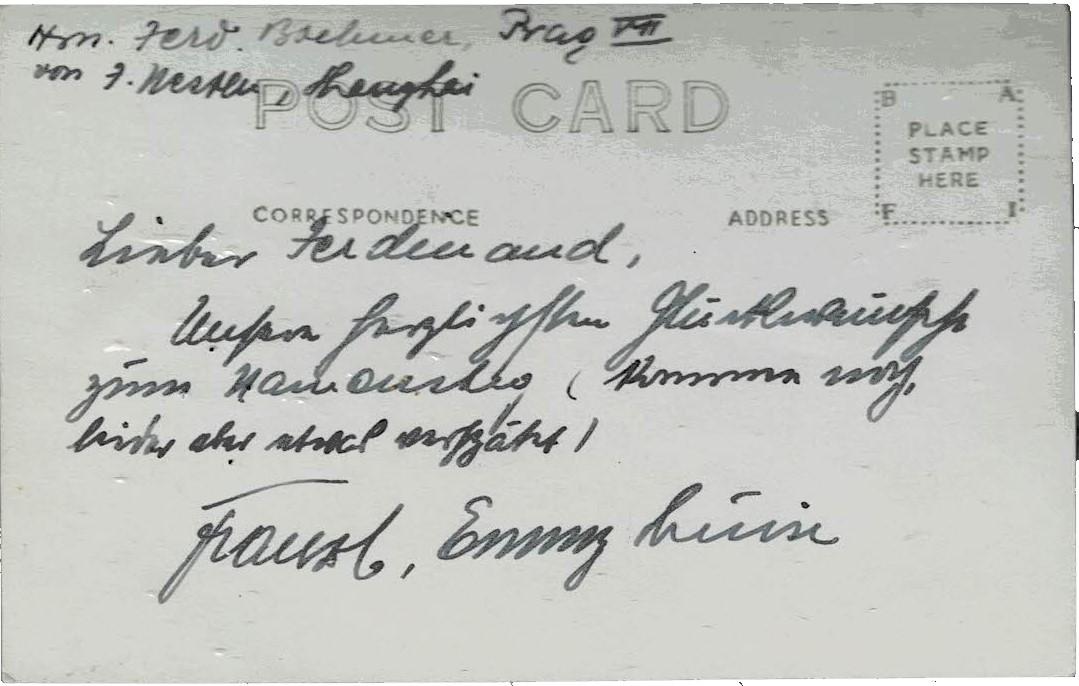 Hrn. Ferd. Boehmer, Prag VII
von F. Nestler, Shanghai
POST CARD
B A
PLACE
STAMP
HERE
F I
CORRESPONDENCE ADDRESS
Lieber Ferdinand,
Unsere herzlichsten Glückwünsche
zum Namenstag (kommen noch,
leider aber etwas verspätet)
Franzl, Emmy Luise